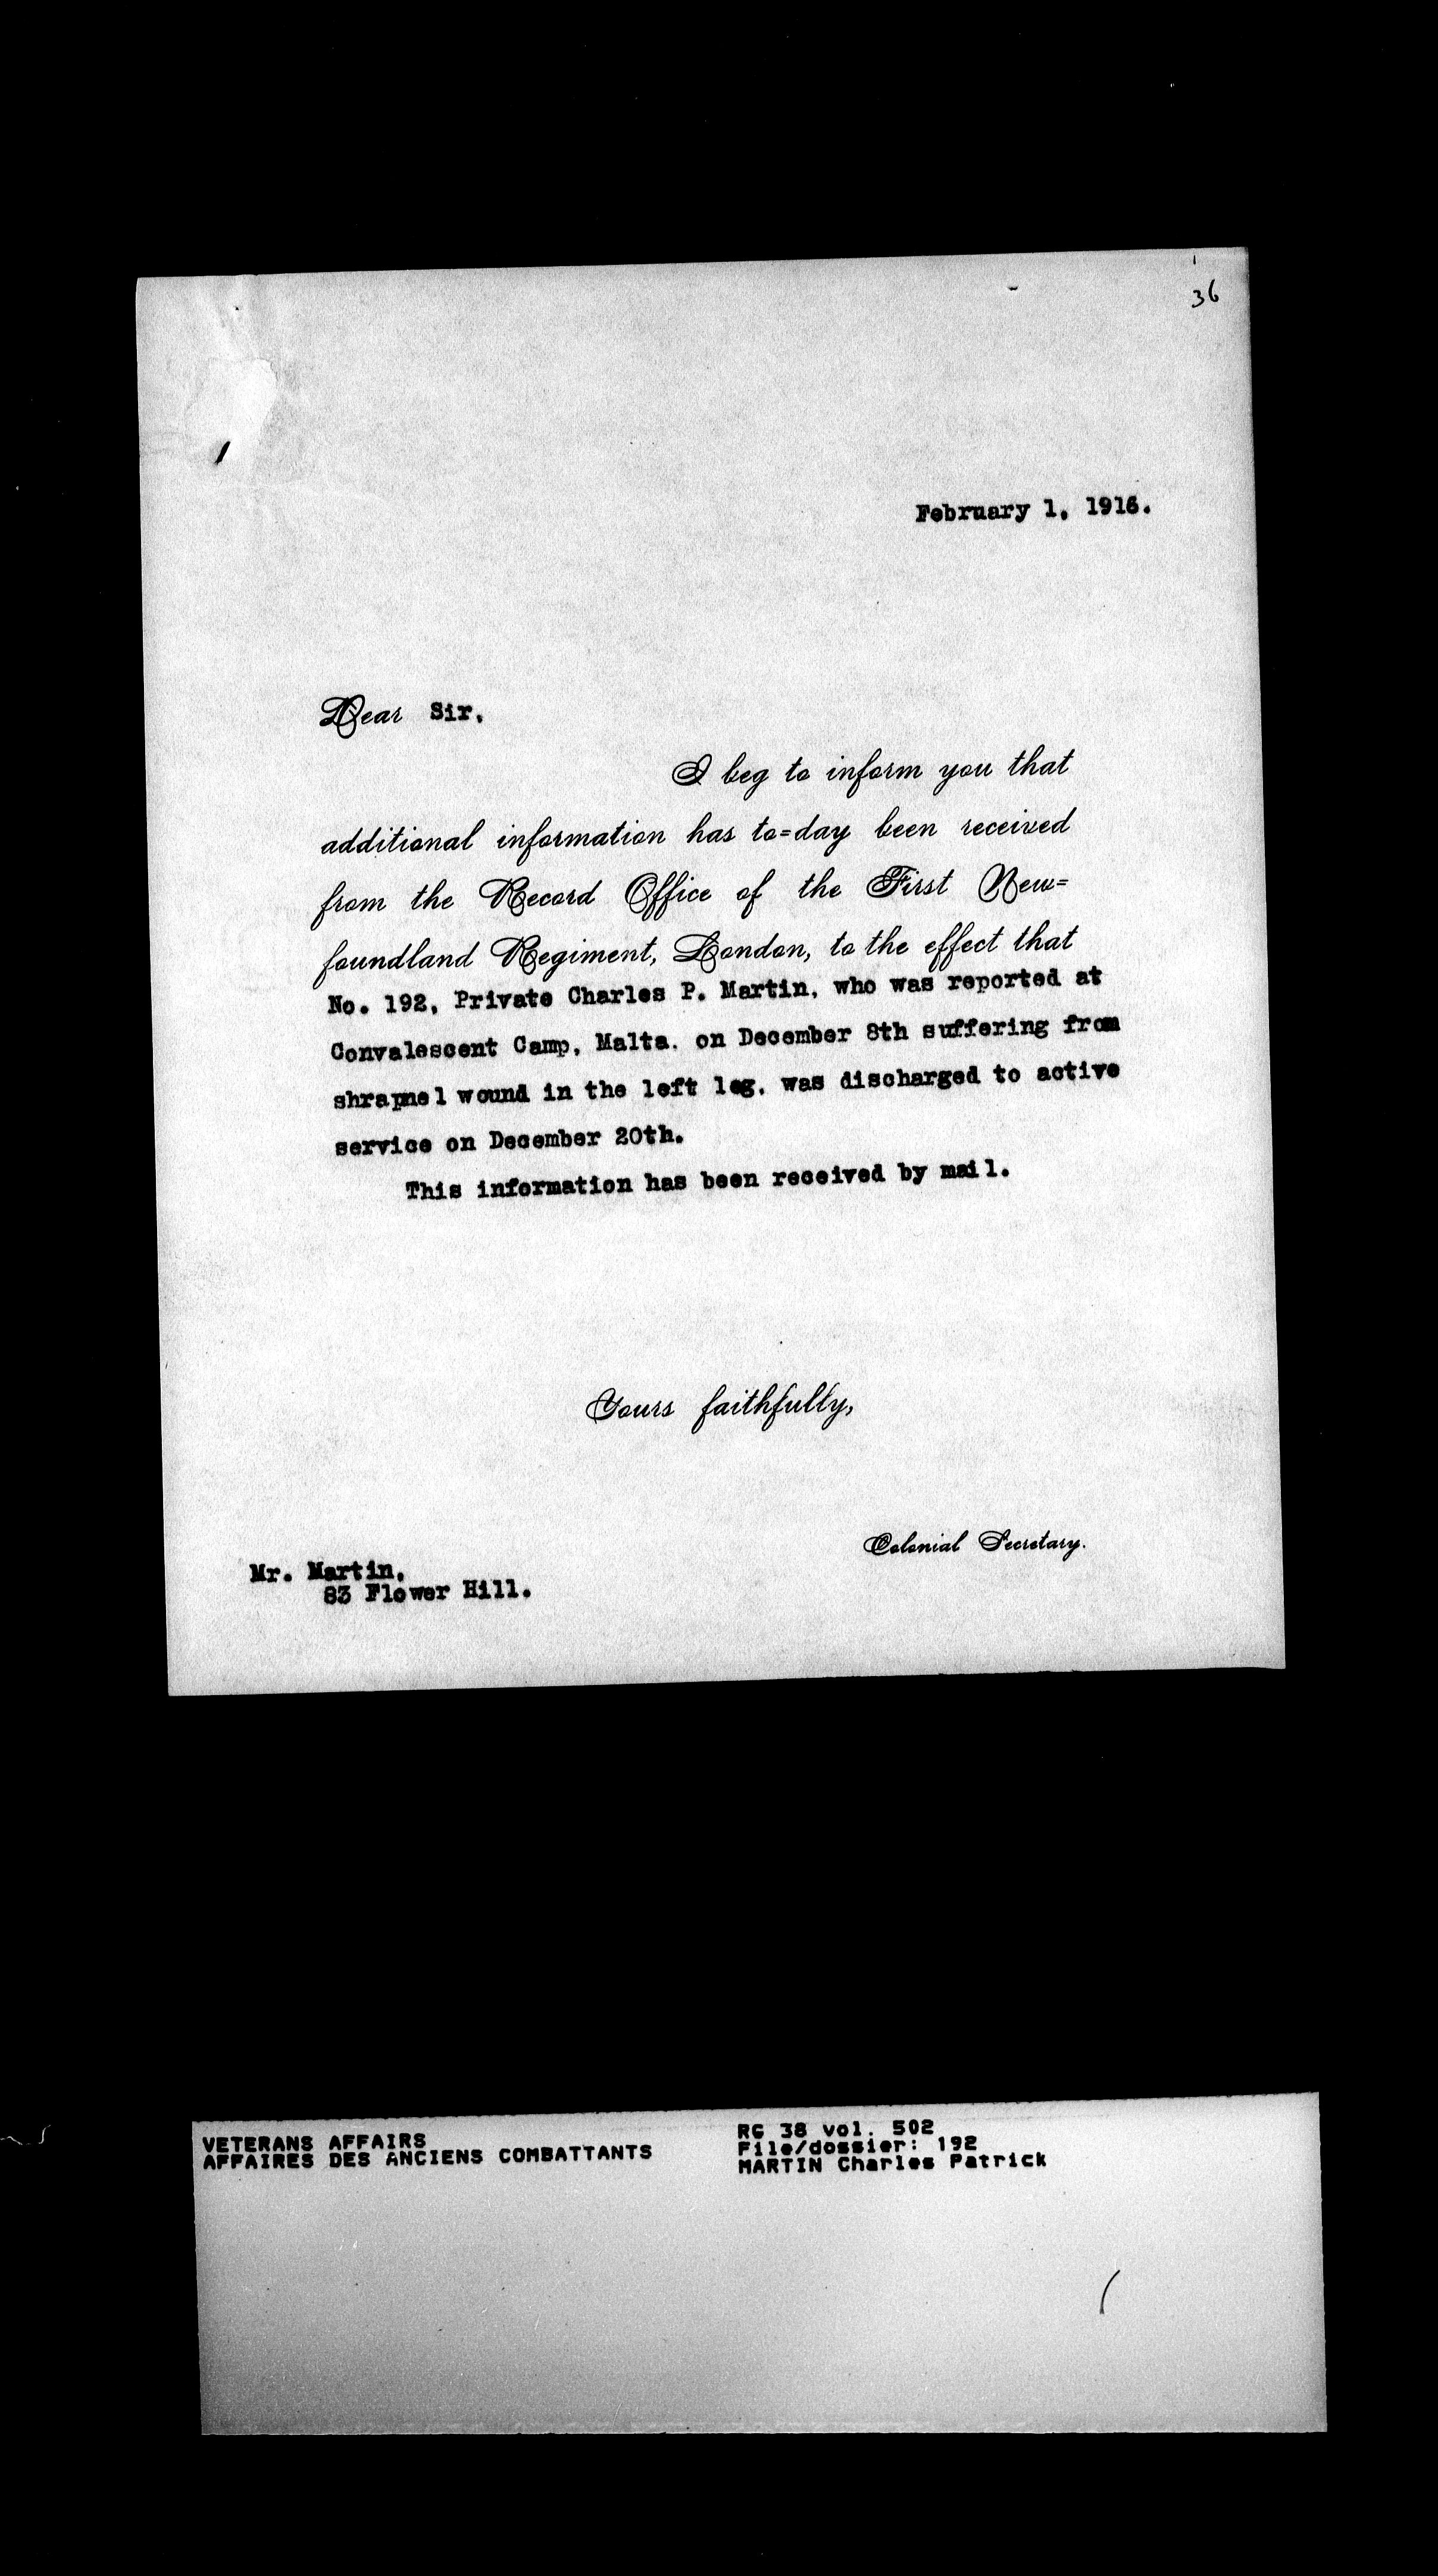 36
February 1, 1916.
Dear Sir,
I beg to inform you that
additional information has to=day been received
from the Record Office of the First New=
foundland Regiment, London, to the effect that
No. 192, Private Charles P. Martin, who was reported at
Convalescent Camp, Malta. on December 8th suffering from
shrapnel wound in the left leg, was discharged to active
service on December 20th.
This information has been received by mail.
Yours faithfully,
Colonial Secretary.
Mr. Martin,
83 Flower Hill.
VETERANS AFFAIRS
AFFAIRES DES ANCIENS COMBATTANTS
RG 38 vol. 502
File/dossier: 192
MARTIN Charles Patrick